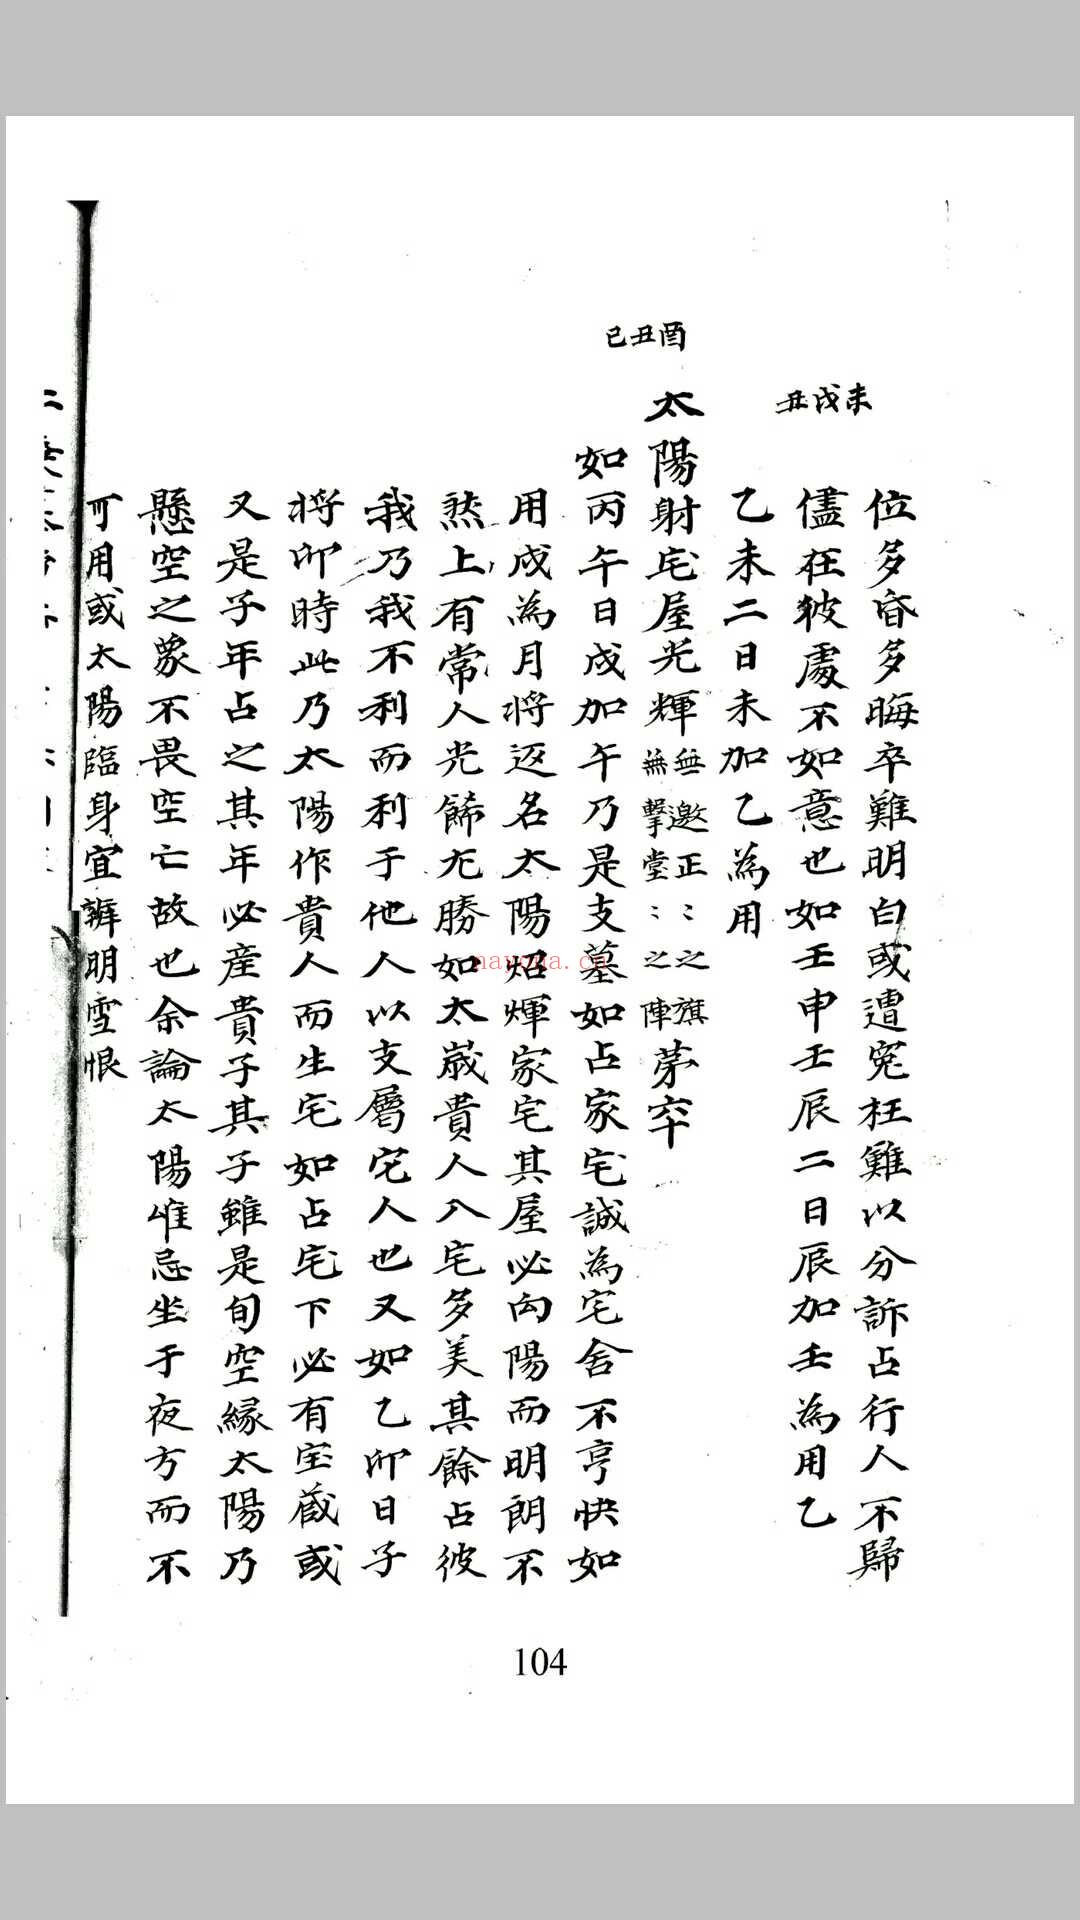 未戌丑
位多昏多晦卒難明白或遭冤枉難以分訴占行人不歸
儘在彼處不如意也如壬申壬辰二日辰加壬為用乙
乙未二日未加乙為用
酉丑巳
太陽射宅屋光輝無邀正〻之旗無擊堂〻之陣茅六十
如丙午日戌加午乃是支墓如占家宅誠為宅舍不亨快如
用戌為月將返名太陽炤輝家宅其屋必向陽而明朗不
然上有常人光餙尤勝如太歲貴人入宅多美其餘占彼
我乃我不利而利于他人以支屬宅人也又如乙卯日子
將卯時此乃太陽作貴人而生宅如占宅下必有宝藏或
又是子年占之其年必產貴子其子雖是旬空緣太陽乃
懸空之象不畏空亡故也余論太陽惟忌坐于夜方而不
可用或太陽臨身宜辨明雪恨
nayona.cn
104